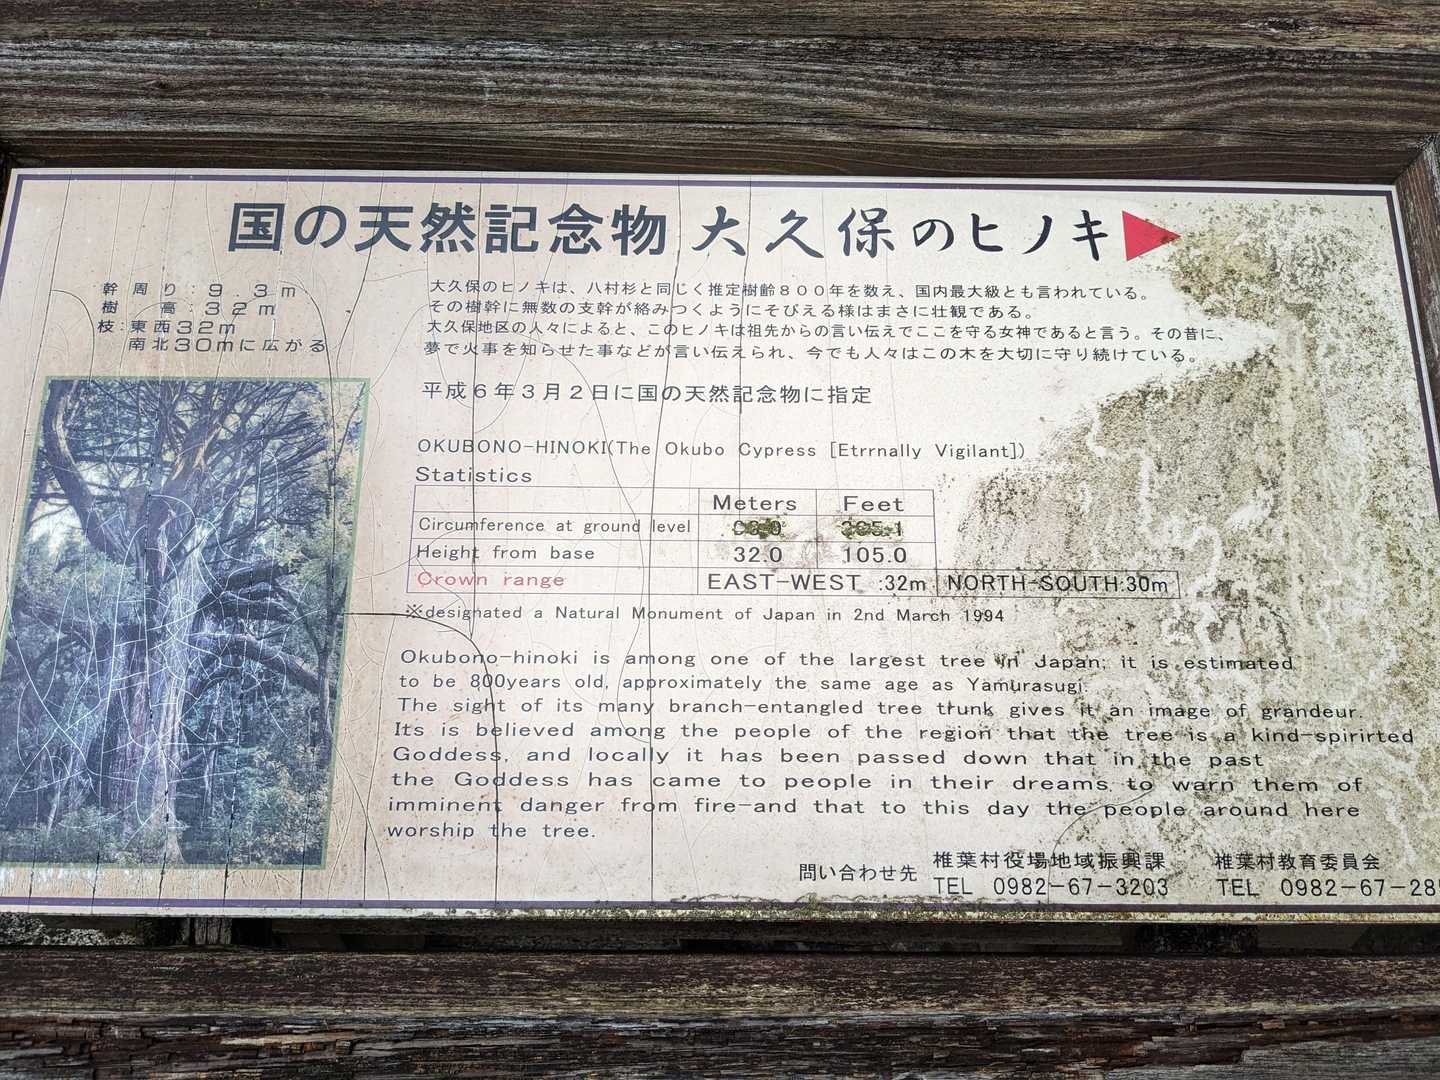 国の天然記念物 大久保のヒノキ
幹周り:9.3m
樹 高:32m
枝:東西32m
南北30mに広がる
大久保のヒノキは、八村杉と同じく推定樹齢800年を数え、国内最大級とも言われている。
その樹幹に無数の支幹が絡みつくようにそびえる様はまさに壮観である。
大久保地区の人々によると、このヒノキは祖先からの言い伝えでここを守る女神であると言う。その昔に、
夢で火事を知らせた事などが言い伝えられ、今でも人々はこの木を大切に守り続けている。
平成6年3月2日に国の天然記念物に指定
OKUBONO-HINOKI(The Okubo Cypress [Etrrnally Vigilant])
Statistics
Meters Feet
Circumference at ground level
Height from base 32.0 105.0
Crown range EAST-WEST :32m NORTH-SOUTH:30m
※designated a Natural Monument of Japan in 2nd March 1994
Okubono-hinoki is among one of the largest tree in Japan; it is estimated
to be 800years old, approximately the same age as Yamurasugi.
The sight of its many branch-entangled tree trunk gives it an image of grandeur.
Its is believed among the people of the region that the tree is a kind-spirirted
Goddess, and locally it has been passed down that in the past
the Goddess has came to people in their dreams to warn them of
imminent danger from fire-and that to this day the people around here
worship the tree.
問い合わせ先 椎葉村役場地域振興課 椎葉村教育委員会
TEL 0982-67-3203 TEL 0982-67-28